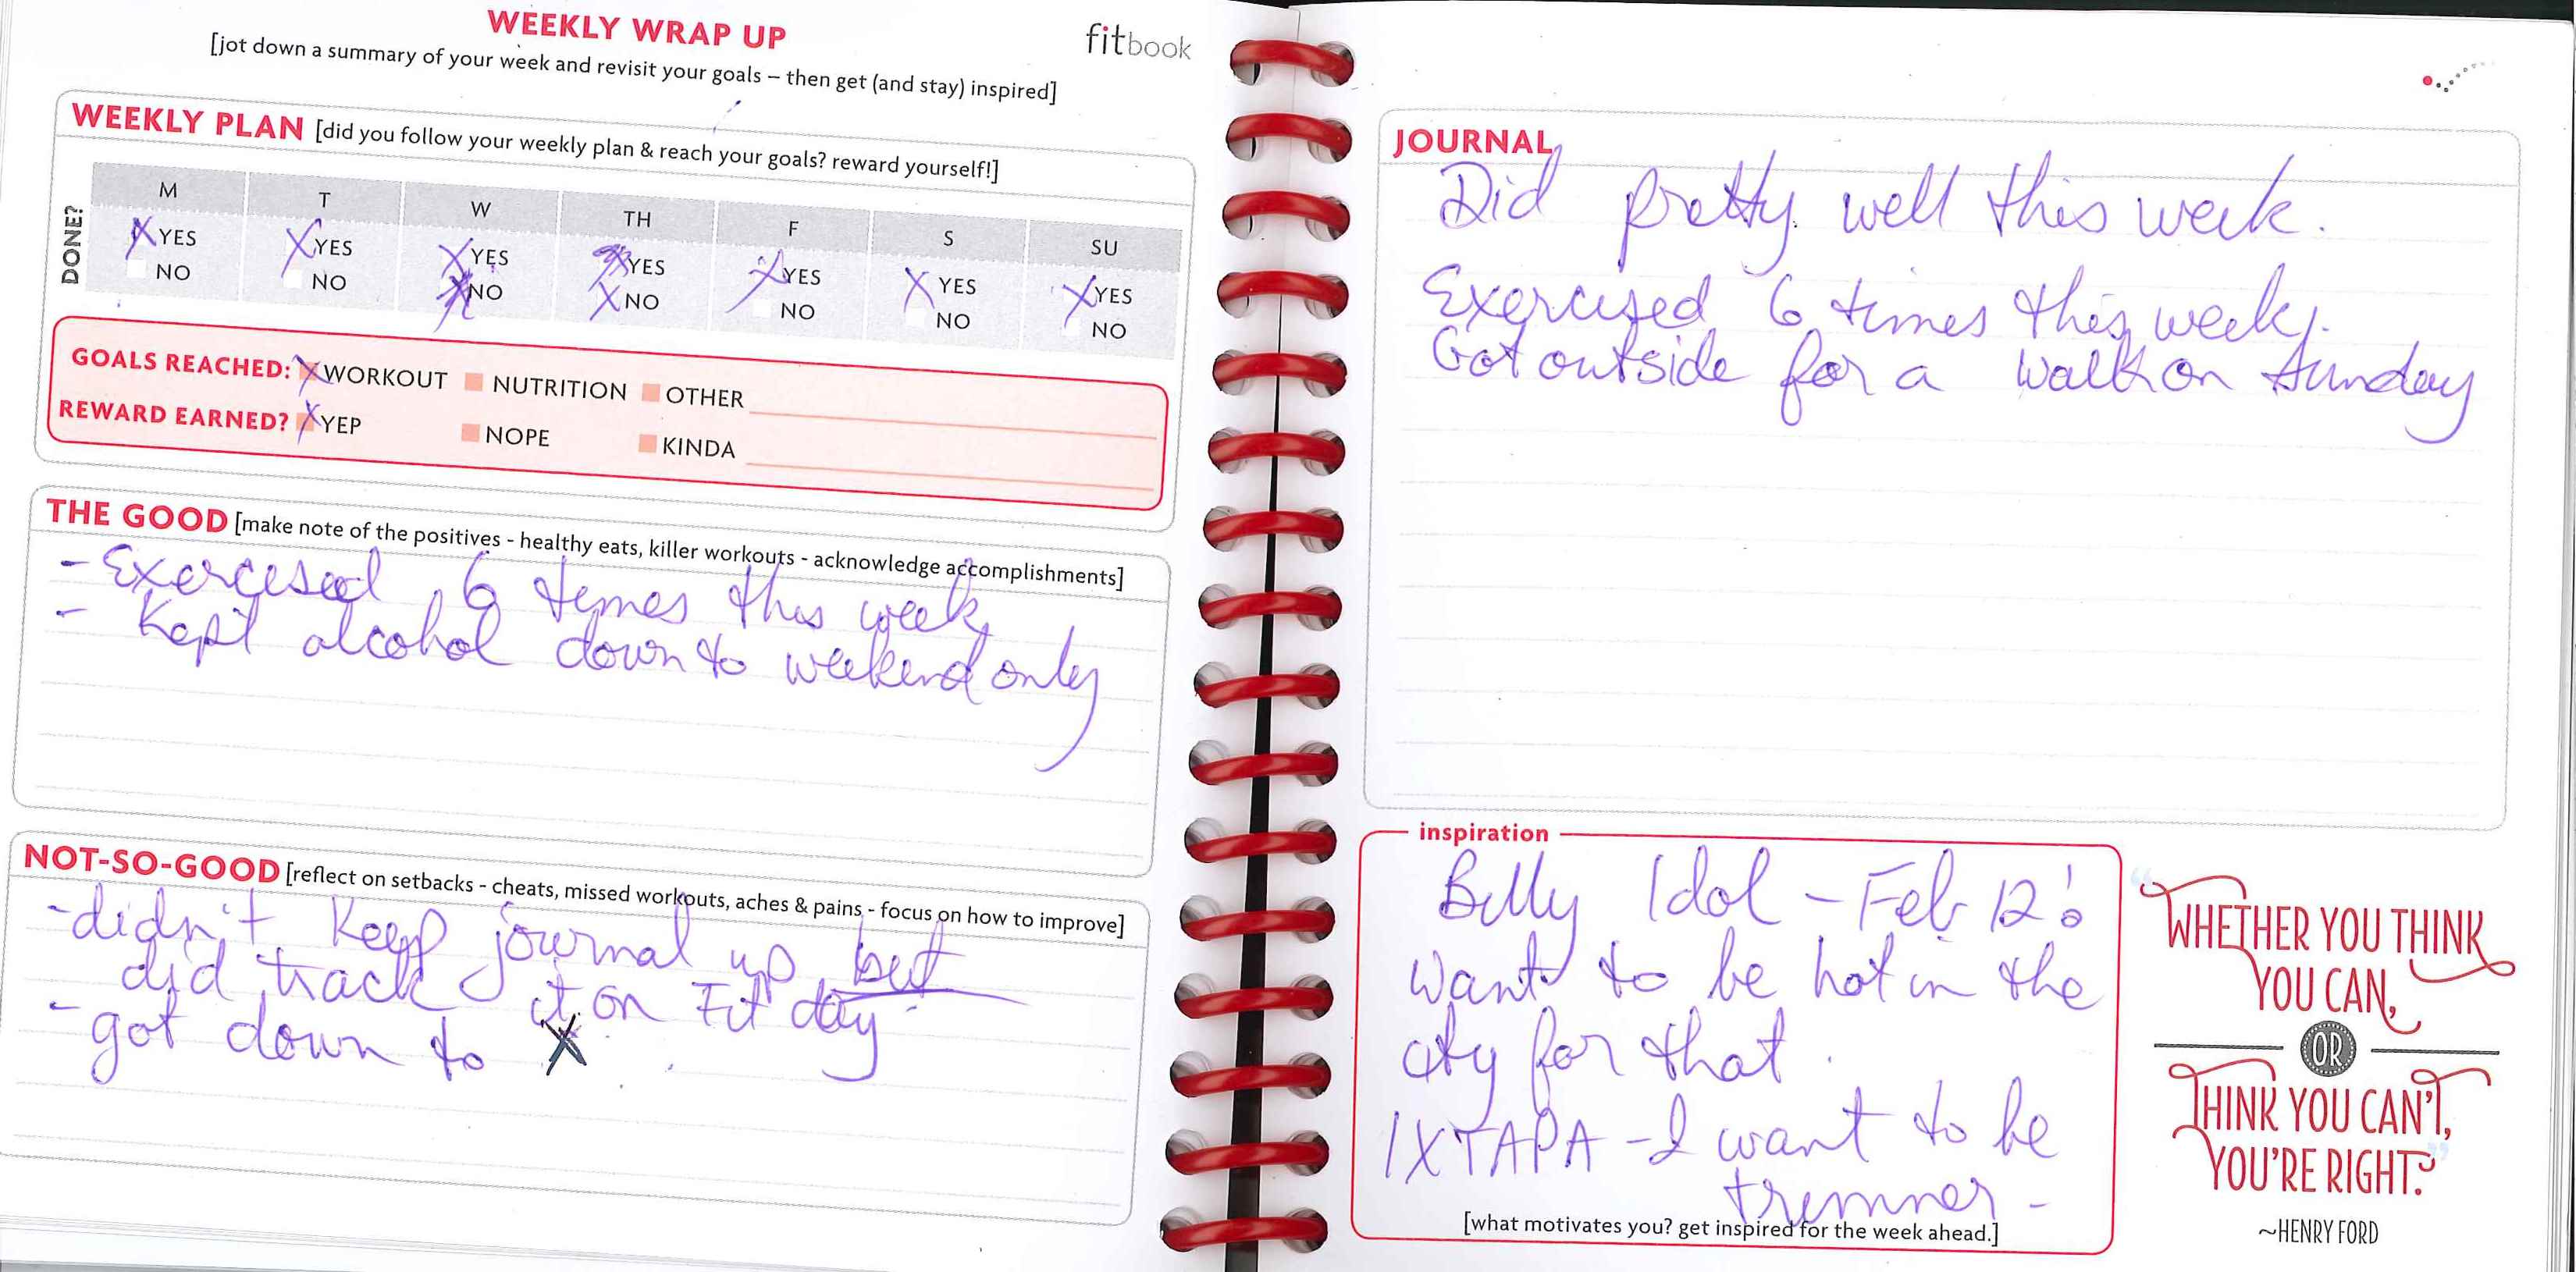 WEEKLY WRAP UP
fitbook
[jot down a summary of your week and revisit your goals – then get (and stay) inspired]
WEEKLY PLAN [did you follow your weekly plan & reach your goals? reward yourself!]
DONE?
M T W TH F S SU
X YES X YES X YES X YES X YES X YES X YES
NO NO X NO X NO NO NO NO
GOALS REACHED: X WORKOUT NUTRITION OTHER
REWARD EARNED? X YEP NOPE KINDA
THE GOOD [make note of the positives - healthy eats, killer workouts - acknowledge accomplishments]
- Exercised 6 times this week
- Kept alcohol down to weekend only
NOT-SO-GOOD [reflect on setbacks - cheats, missed workouts, aches & pains - focus on how to improve]
- didn't keep journal up but
did track it on Fit day
- got down to X
JOURNAL
Did pretty well this week.
Exercised 6 times this week.
Got outside for a walk on Sunday
inspiration
Billy Idol - Feb 12!
want to be hot in the
city for that.
IXTAPA - I want to be
trimmer -
[what motivates you? get inspired for the week ahead.]
“WHETHER YOU THINK
YOU CAN,
OR
THINK YOU CAN'T,
YOU'RE RIGHT.”
~HENRY FORD